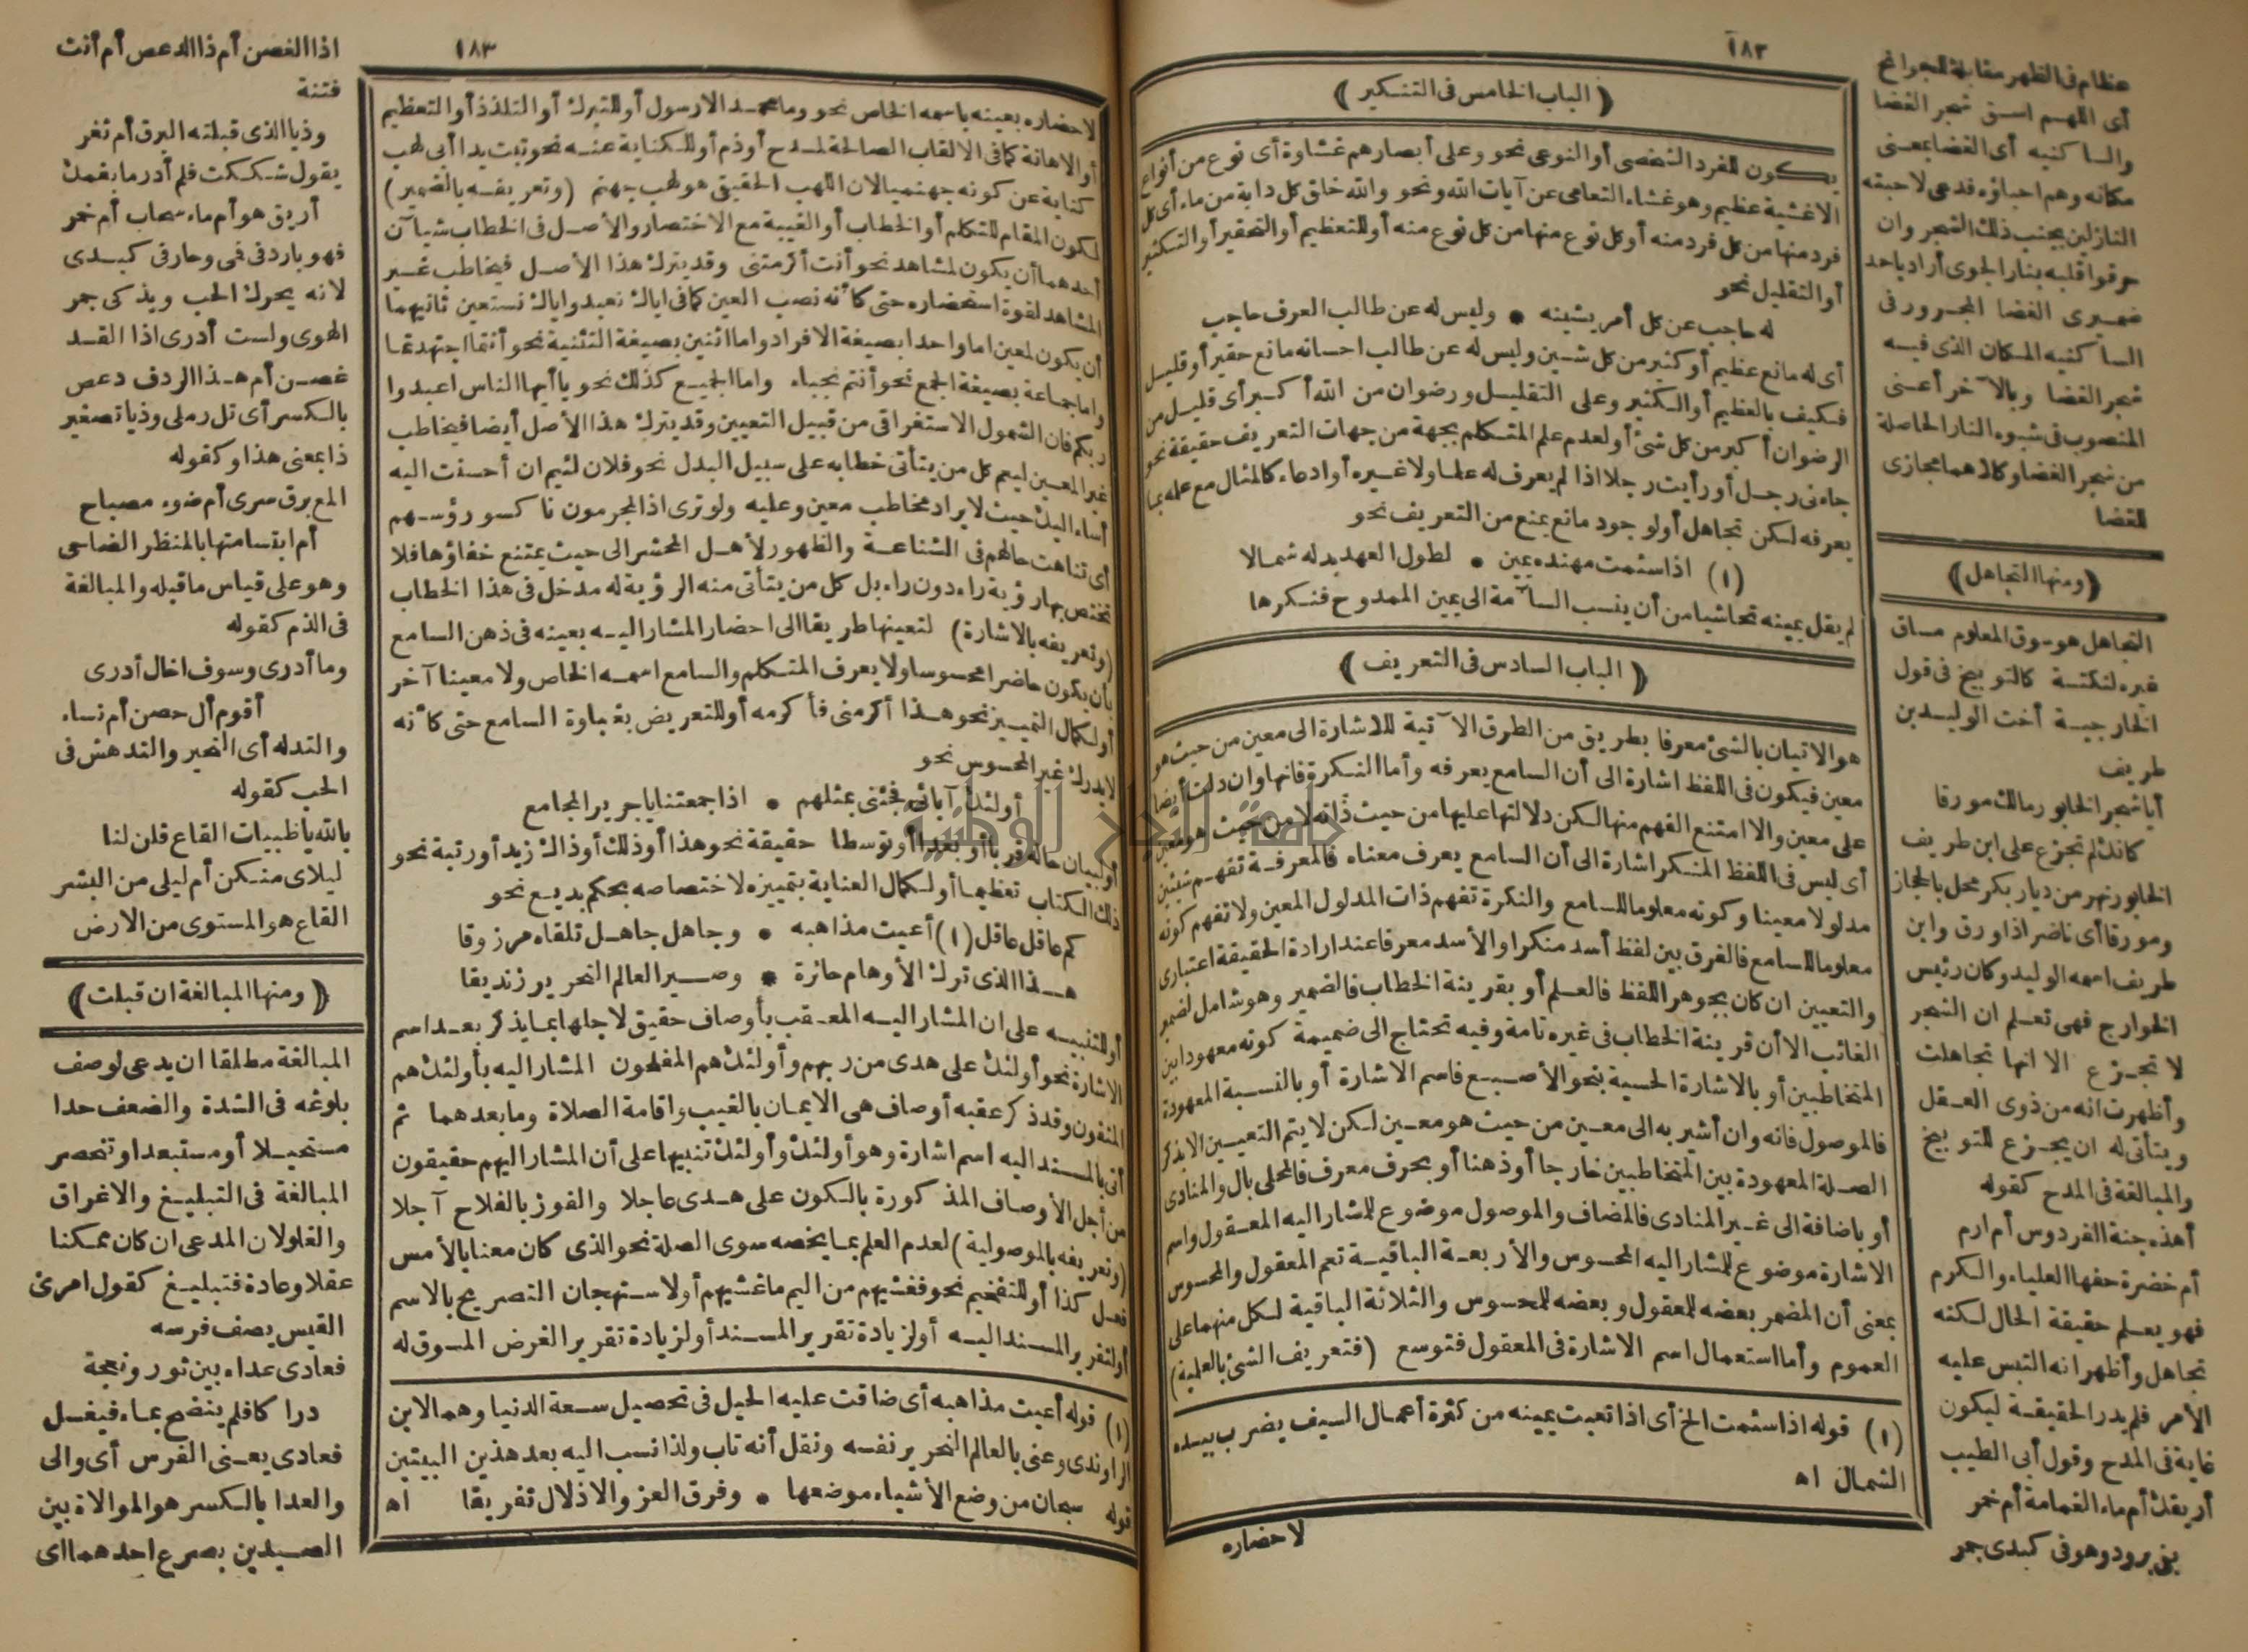 ١٨٢
﴿ الباب الخامس فى التنكير ﴾
يكون للفرد الشخصى أو النوعى نحو وعلى أبصارهم غشاوة أى نوع من أنواع
الاغشية عظيم وهو غشاء التعامى عن آيات الله ونحو والله خلق كل دابة من ماء أى كل
فرد منها من كل فرد منه أو كل نوع منها من كل نوع منه أو للتعظيم أو التحقير أو التكثير
أو التقليل نحو
له حاجب عن كل أمر يشينه * وليس له عن طالب العرف حاجب
أى له مانع عظيم أو كثير من كل شين وليس له عن طالب احسانه مانع حقير أو قليل
فكيف بالعظيم أو الكثير وعلى التقليل ورضوان من الله أكبر أى قليل من
الرضوان أكبر من كل شئ أو لعدم علم المتكلم بجهة من جهات التعريف حقيقة نحو
جاءنى رجل أو رأيت رجلا اذا لم يعرف له علما ولا غيره أو ادعاء كالمثال مع علمه بما
يعرفه لكن تجاهل أو لوجود مانع يمنع من التعريف نحو
(١) اذا سئمت مهنده يمين * لطول العهد بدله شمالا
لم يقل يمينه تحاشيا من أن ينسب السآمة الى يمين الممدوح فنكرها
﴿ الباب السادس فى التعريف ﴾
هو الاتيان بالشئ معرفا بطريق من الطرق الآتية للاشارة الى معين من حيث هو
معين فيكون فى اللفظ اشارة الى أن السامع يعرفه وأما النكرة فانها وان دلت أيضا
على معين والا امتنع الفهم منها لكن دلالتها عليها من حيث ذاته لا من حيث هو معين
أى ليس فى اللفظ المنكر اشارة الى أن السامع يعرف معناه فالمعرفة تفهم شيئين
مدلولا معينا وكونه معلوما للسامع والنكرة تفهم ذات المدلول المعين ولا تفهم كونه
معلوما للسامع فالفرق بين لفظ أسد منكرا والأسد معرفا عند ارادة الحقيقة اعتبارى
والتعيين ان كان بجوهر اللفظ فالعلم أو بقرينة الخطاب فالضمير وهو شامل لضمير
الغائب الا أن قرينة الخطاب فى غيره تامة وفيه تحتاج الى ضميمة كونه معهودا بين
المتخاطبين أو بالاشارة الحسية بنحو الأصبع فاسم الاشارة أو بالنسبة المعهودة
فالموصول فانه وان أشير به الى معين من حيث هو معين لكن لا يتم التعيين الا بذكر
الصلة المعهودة بين المتخاطبين خارجا أو ذهنا أو بحرف معرف فالمحلى بال والمنادى
أو باضافة الى غير المنادى فالمضاف والموصول موضوع للمشار اليه المعقول واسم
الاشارة موضوع للمشار اليه المحسوس والأربعة الباقية تعم المعقول والمحسوس
بمعنى أن المضمر بعضه للمعقول وبعضه للمحسوس والثلاثة الباقية لكل منهما على
العموم وأما استعمال اسم الاشارة فى المعقول فتوسع (فتعريف الشئ بالعلمية)
(١) قوله اذا سئمت الخ أى اذا تعبت يمينه من كثرة أعمال السيف يضرب بيده
الشمال اه
لاحضاره
عظام فى الظهر مقابلة للجوانح
أى اللهم اسق شجر الغضا
والساكنيه أى الغضا بمعنى
مكانه وهم احباؤه فدعى لاحبته
النازلين بجنب ذلك الشجر وان
حرقوا قلبه بنار الجوى أراد باحد
ضميرى الغضا المجرور فى
الساكنيه المكان الذى فيه
شجر الغضا وبالآخر أعنى
المنصوب فى شبوه النار الحاصلة
من شجر الغضا وكلاهما مجازى
للغضا
﴿ ومنها التجاهل ﴾
التجاهل هو سوق المعلوم مساق
غيره لنكتة كالتوبيخ فى قول
الخارجية أخت الوليد بن
طريف
أيا شجر الخابور مالك مورقا
كانك لم تجزع على ابن طريف
الخابور نهر من ديار بكر محل بالحجاز
ومورقا أى ناضرا ذا ورق وابن
طريف اسمه الوليد وكان رئيس
الخوارج فهى تعلم ان الشجر
لا تجزع الا انها تجاهلت
وأظهرت انه من ذوى العقل
ويتأتى له ان يجزع للتوبيخ
والمبالغة فى المدح كقوله
أهذه جنة الفردوس أم ارم
أم خضرة حفها العلياء والكرم
فهو يعلم حقيقة الحال لكنه
تجاهل وأظهر انه التبس عليه
الأمر فلم يدر الحقيقة ليكون
غاية فى المدح وقول أبى الطيب
أريقك أم ماء الغمامة أم خمر
بفى برود وهو فى كبدى جمر
١٨٣
لاحضاره بعينه باسمه الخاص نحو وما محمد الا رسول أو للتبرك أو التلذذ أو التعظيم
أو الاهانة كما فى الالقاب الصالحة لمدح أو ذم أو للكناية عنه نحو تبت يدا أبى لهب
كناية عن كونه جهنميا لان اللهب الحقيقى هو لهب جهنم (وتعريفه بالضمير)
لكون المقام للتكلم أو الخطاب أو الغيبة مع الاختصار والأصل فى الخطاب شيآن
أحدهما أن يكون لمشاهد نحو أنت أكرمتنى وقد يترك هذا الأصل فيخاطب غير
المشاهد لقوة استحضاره حتى كأنه نصب العين كما فى اياك نعبد واياك نستعين ثانيهما
أن يكون لمعين اما واحدا بصيغة الافراد واما اثنين بصيغة التثنية نحو أنتما اجتهدتما
واما جماعة بصيغة الجمع نحو أنتم نجباء واما الجميع كذلك نحو يا أيها الناس اعبدوا
ربكم فان الشمول الاستغراقى من قبيل التعيين وقد يترك هذا الأصل أيضا فيخاطب
غير المعين ليعم كل من يتأتى خطابه على سبيل البدل نحو فلان لئيم ان أحسنت اليه
أساء اليك حيث لا يراد مخاطب معين وعليه ولو ترى اذ المجرمون ناكسو رؤسهم
أى تناهت حالهم فى الشناعة والظهور لأهل المحشر الى حيث يمتنع خفاؤها فلا
تختص بها رؤية راء دون راء بل كل من يتأتى منه الرؤية له مدخل فى هذا الخطاب
(وتعريفه بالاشارة) لتعينها طريقا الى احضار المشار اليه بعينه فى ذهن السامع
بأن يكون حاضرا محسوسا ولا يعرف المتكلم والسامع اسمه الخاص ولا معينا آخر
أو لكمال التمييز نحو هذا أكرمنى فأكرمه أو للتعريض بغباوة السامع حتى كأنه
لا يدرك غير المحسوس نحو
أولئك آبائى فجئنى بمثلهم * اذا جمعتنا يا جرير المجامع
أو لبيان حاله قربا أو بعدا أو توسطا حقيقة نحو هذا أو ذلك أو ذاك زيد أو رتبة نحو
ذلك الكتاب تعظيما أو لكمال العناية بتمييزه لاختصاصه بحكم بديع نحو
كم عاقل عاقل (١) أعيت مذاهبه * وجاهل جاهل تلقاه مرزوقا
هذا الذى ترك الأوهام حائرة * وصير العالم النحرير زنديقا
أو للتنبيه على ان المشار اليه المعقب بأوصاف حقيق لاجلها بما يذكر بعد اسم
الاشارة نحو أولئك على هدى من ربهم وأولئك هم المفلحون المشار اليه بأولئك هم
المتقون وقد ذكر عقبه أوصاف هى الايمان بالغيب واقامة الصلاة وما بعدهما ثم
أتى بالمسند اليه اسم اشارة وهو أولئك وأولئك تنبيها على أن المشار اليهم حقيقون
من أجل الأوصاف المذكورة بالكون على هدى عاجلا والفوز بالفلاح آجلا
(وتعريفه بالموصولية) لعدم العلم بما يخصه سوى الصلة نحو الذى كان معنا بالأمس
فعل كذا أو للتفخيم نحو فغشيهم من اليم ما غشيهم أو لاستهجان التصريح بالاسم
أو لتقرير المسند اليه أو لزيادة تقرير المسند أو لزيادة تقرير الغرض المسوق له
(١) قوله أعيت مذاهبه أى ضاقت عليه الحيل فى تحصيل سعة الدنيا وهما لابن
الراوندى وعنى بالعالم النحرير نفسه ونقل أنه تاب ولذا نسب اليه بعد هذين البيتين
قوله سبحان من وضع الأشياء موضعها * وفرق العز والاذلال تفريقا اه
اذا الغصن أم ذا الدعص أم أنت
فتنة
وذيا الذى قبلته البرق أم ثغر
يقول شككت فلم أدر ما بفمك
أريق هو أم ماء سحاب أم خمر
فهو بارد فى فمى وحار فى كبدى
لانه يحرك الحب ويذكى جمر
الهوى ولست أدرى اذا القد
غصن أم هذا الردف دعص
بالكسر أى تل رملى وذيا تصغير
ذا بمعنى هذا وكقوله
المع برق سرى أم ضوء مصباح
أم ابتسامتها بالمنظر الضاحى
وهو على قياس ما قبله والمبالغة
فى الذم كقوله
وما أدرى وسوف اخال أدرى
أقوم آل حصن أم نساء
والتدله أى التحير والتدهش فى
الحب كقوله
بالله يا ظبيات القاع قلن لنا
ليلاى منكن أم ليلى من البشر
القاع هو المستوى من الارض
﴿ ومنها المبالغة ان قبلت ﴾
المبالغة مطلقا ان يدعى لوصف
بلوغه فى الشدة والضعف حدا
مستحيلا أو مستبعدا وتنحصر
المبالغة فى التبليغ والاغراق
والغلو لان المدعى ان كان ممكنا
عقلا وعادة فتبليغ كقول امرئ
القيس يصف فرسه
فعادى عداء بين ثور ونعجة
دراكا فلم ينضح بماء فيغسل
فعادى يعنى الفرس أى والى
والعدا بالكسر هو الموالاة بين
الصيدين بصرع احدهما اى
جامعة النجاح الوطنية